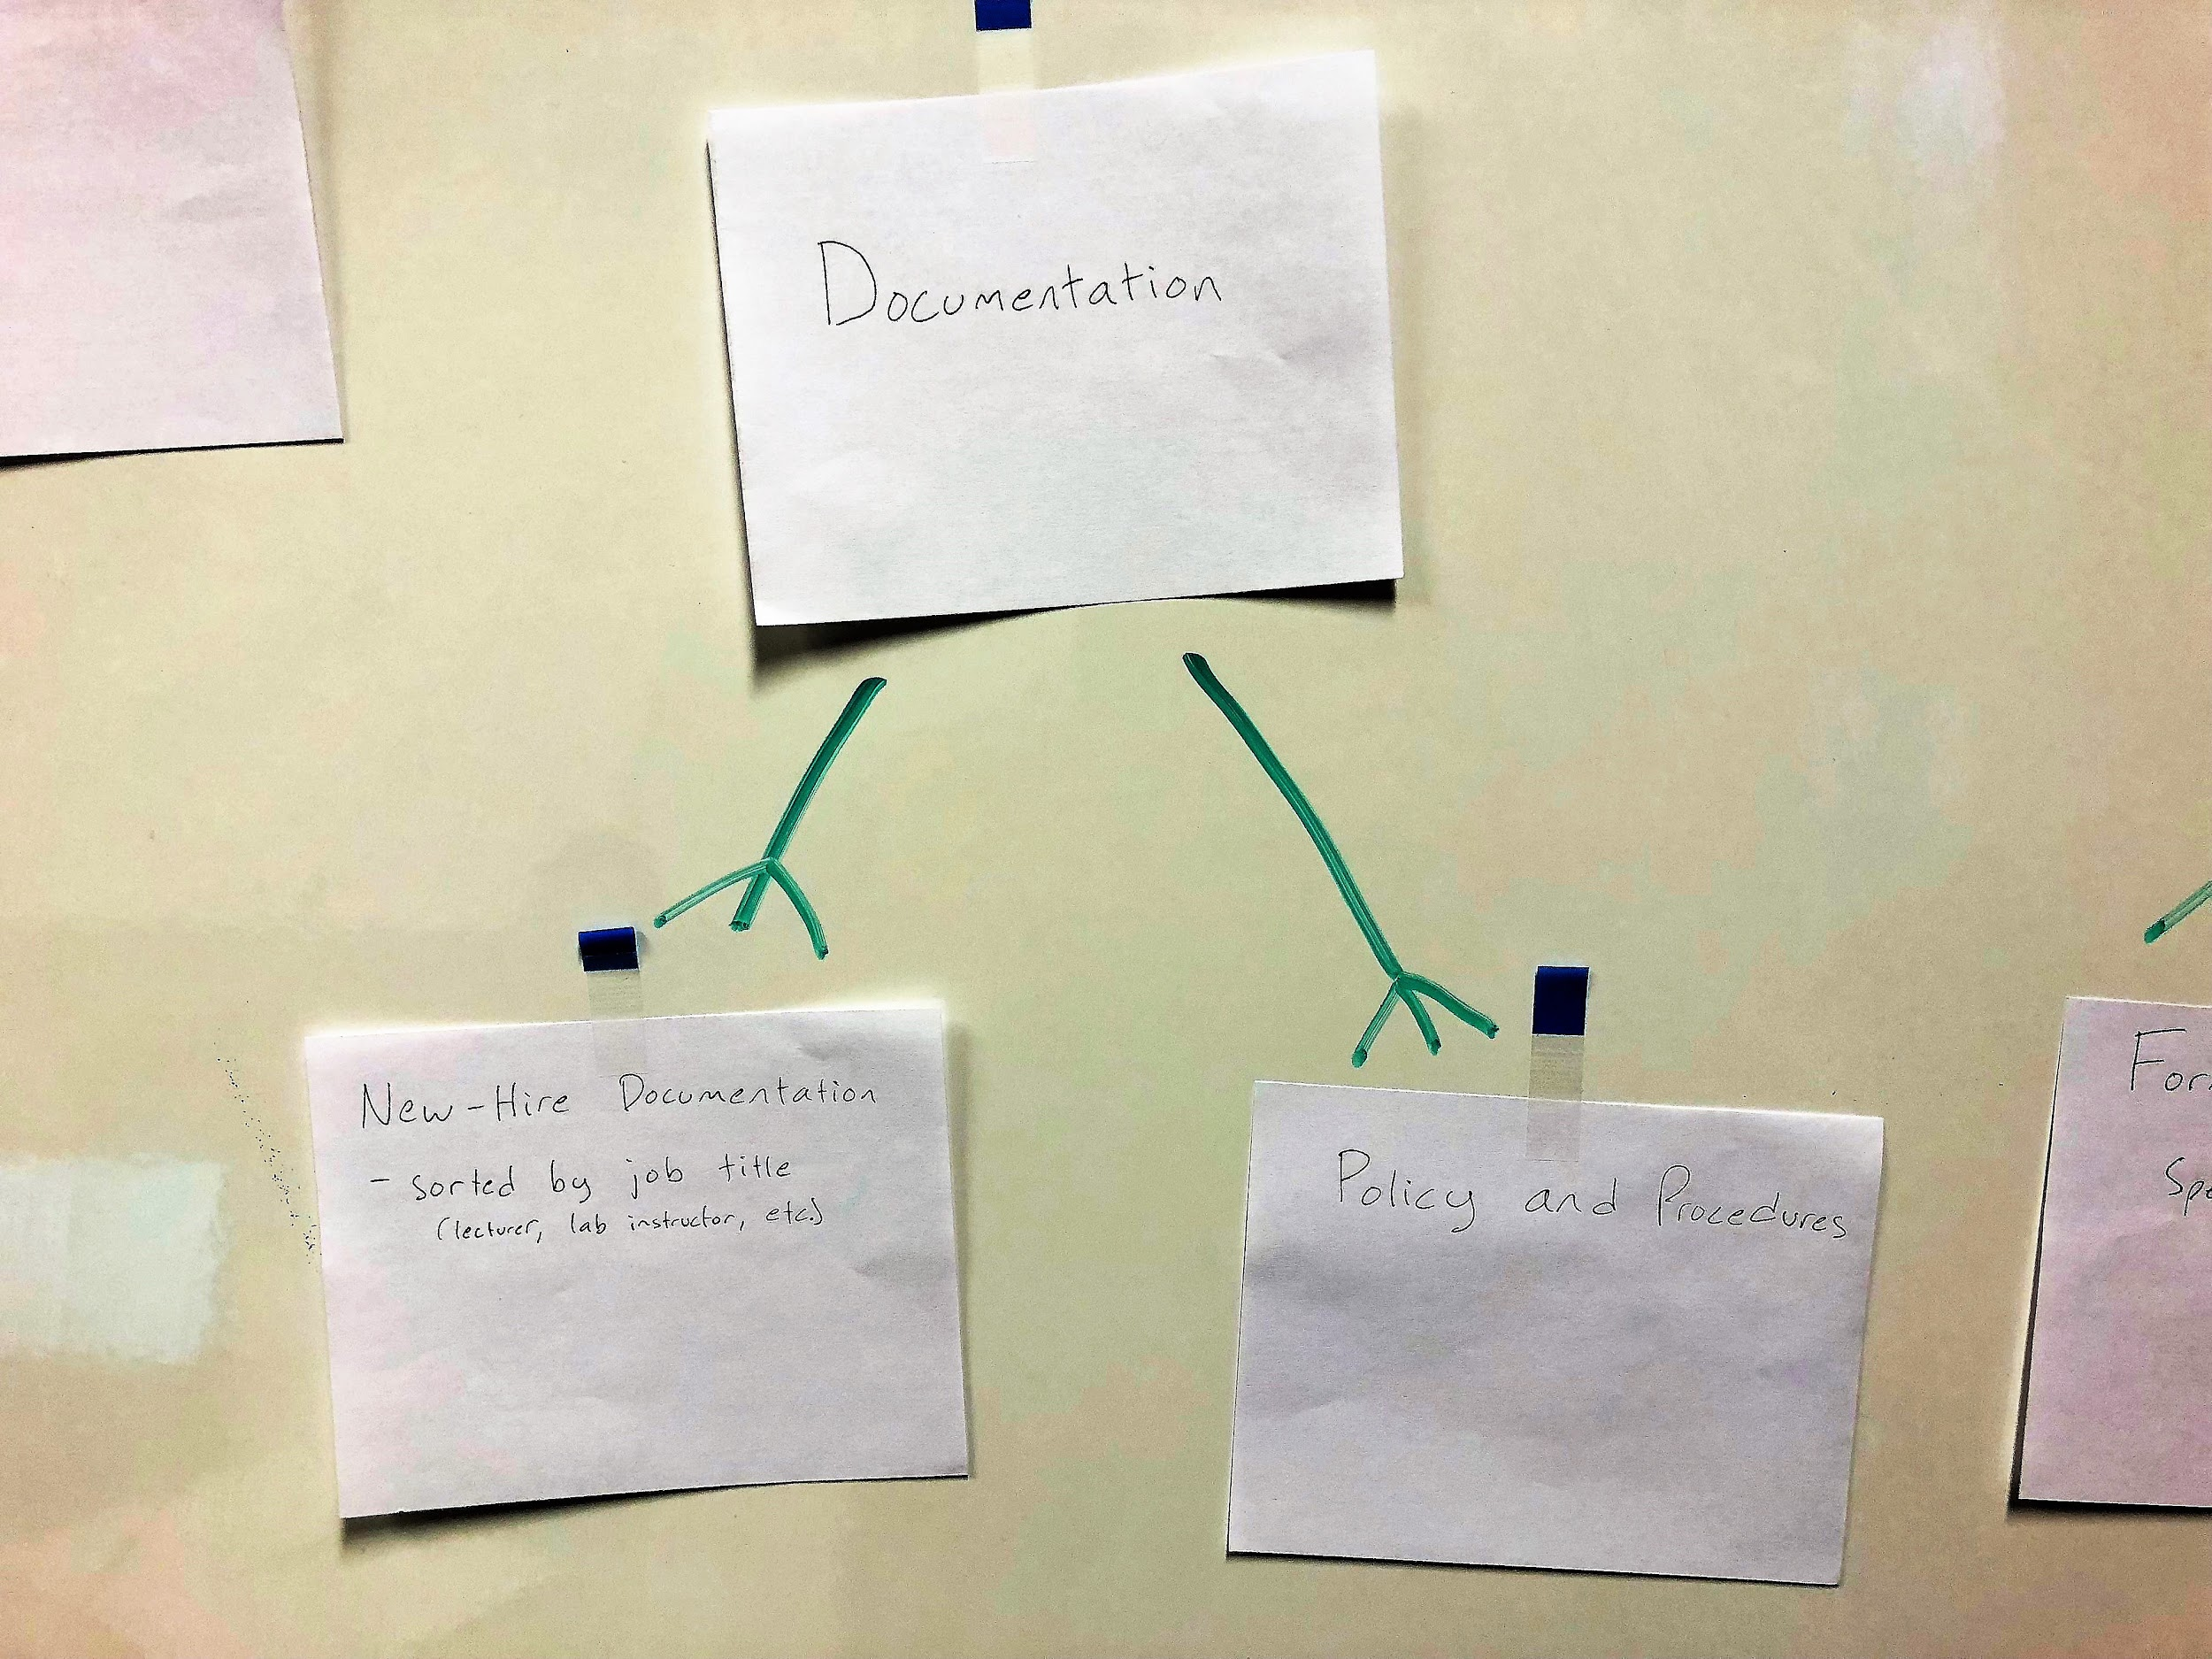 Documentation
New-Hire Documentation
- sorted by job title
(lecturer, lab instructor, etc.)
Policy and Procedures